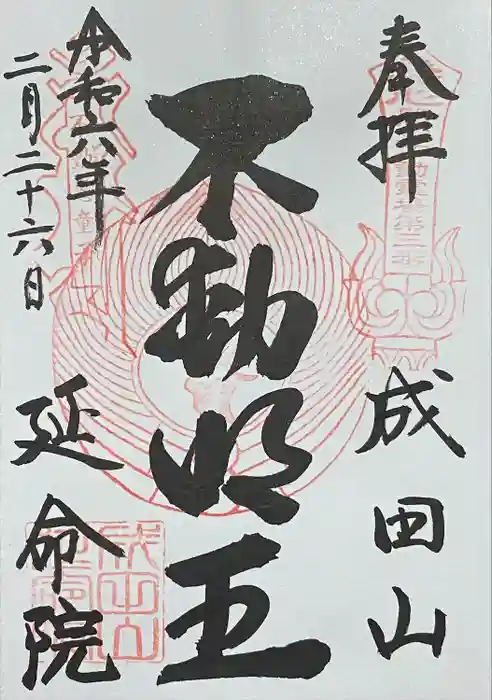 奉拝
成田山
不動明王
令和六年
二月二十六日
延命院